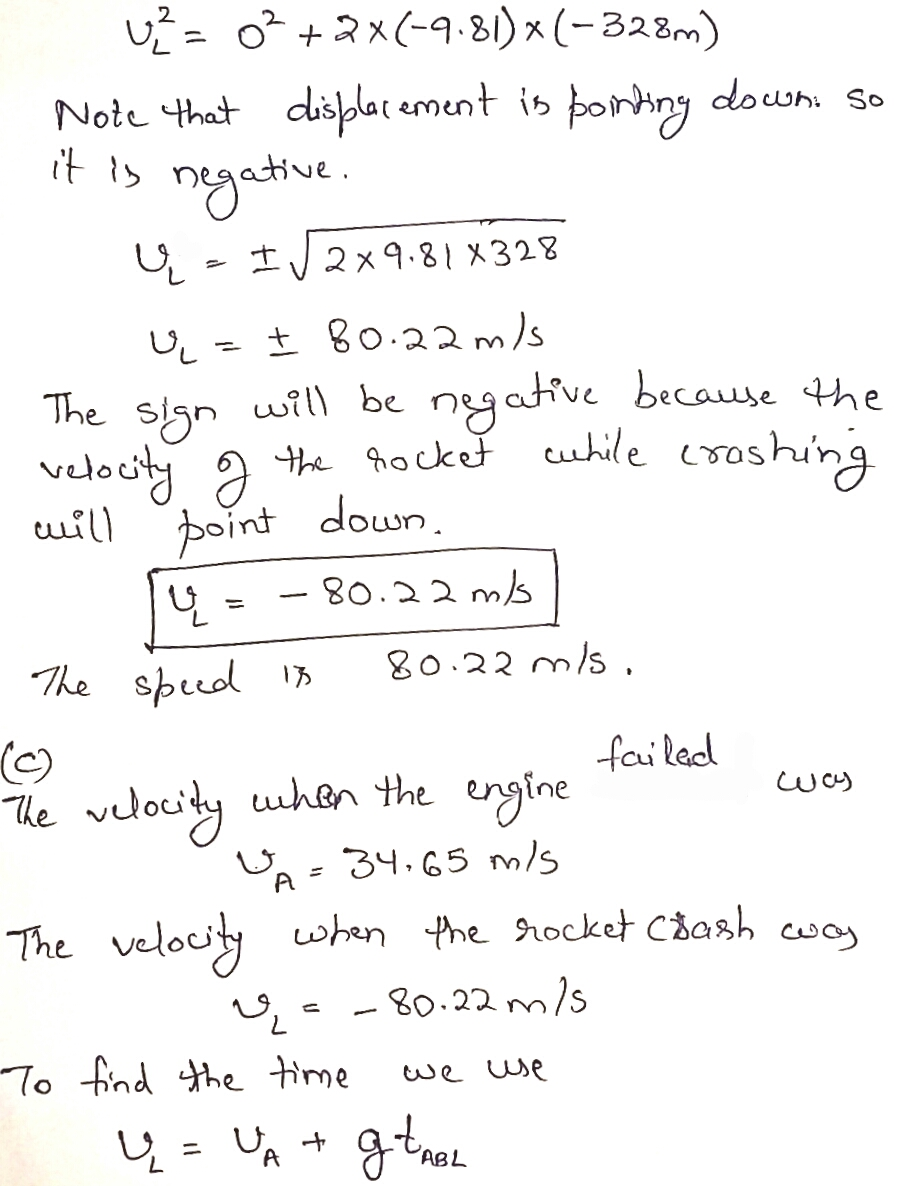 υ_L² = 0² + 2×(-9.81)×(-328m)
Note that displacement is pointing down. so
it is negative.
υ_L = ±√2×9.81×328
υ_L = ± 80.22 m/s
The sign will be negative because the
velocity of the rocket while crashing
will point down.
υ_L = - 80.22 m/s
The speed is 80.22 m/s.
(c)
The velocity when the engine failed was
υ_A = 34.65 m/s
The velocity when the rocket crash was
υ_L = -80.22 m/s
To find the time we use
υ_L = υ_A + gt_ABL